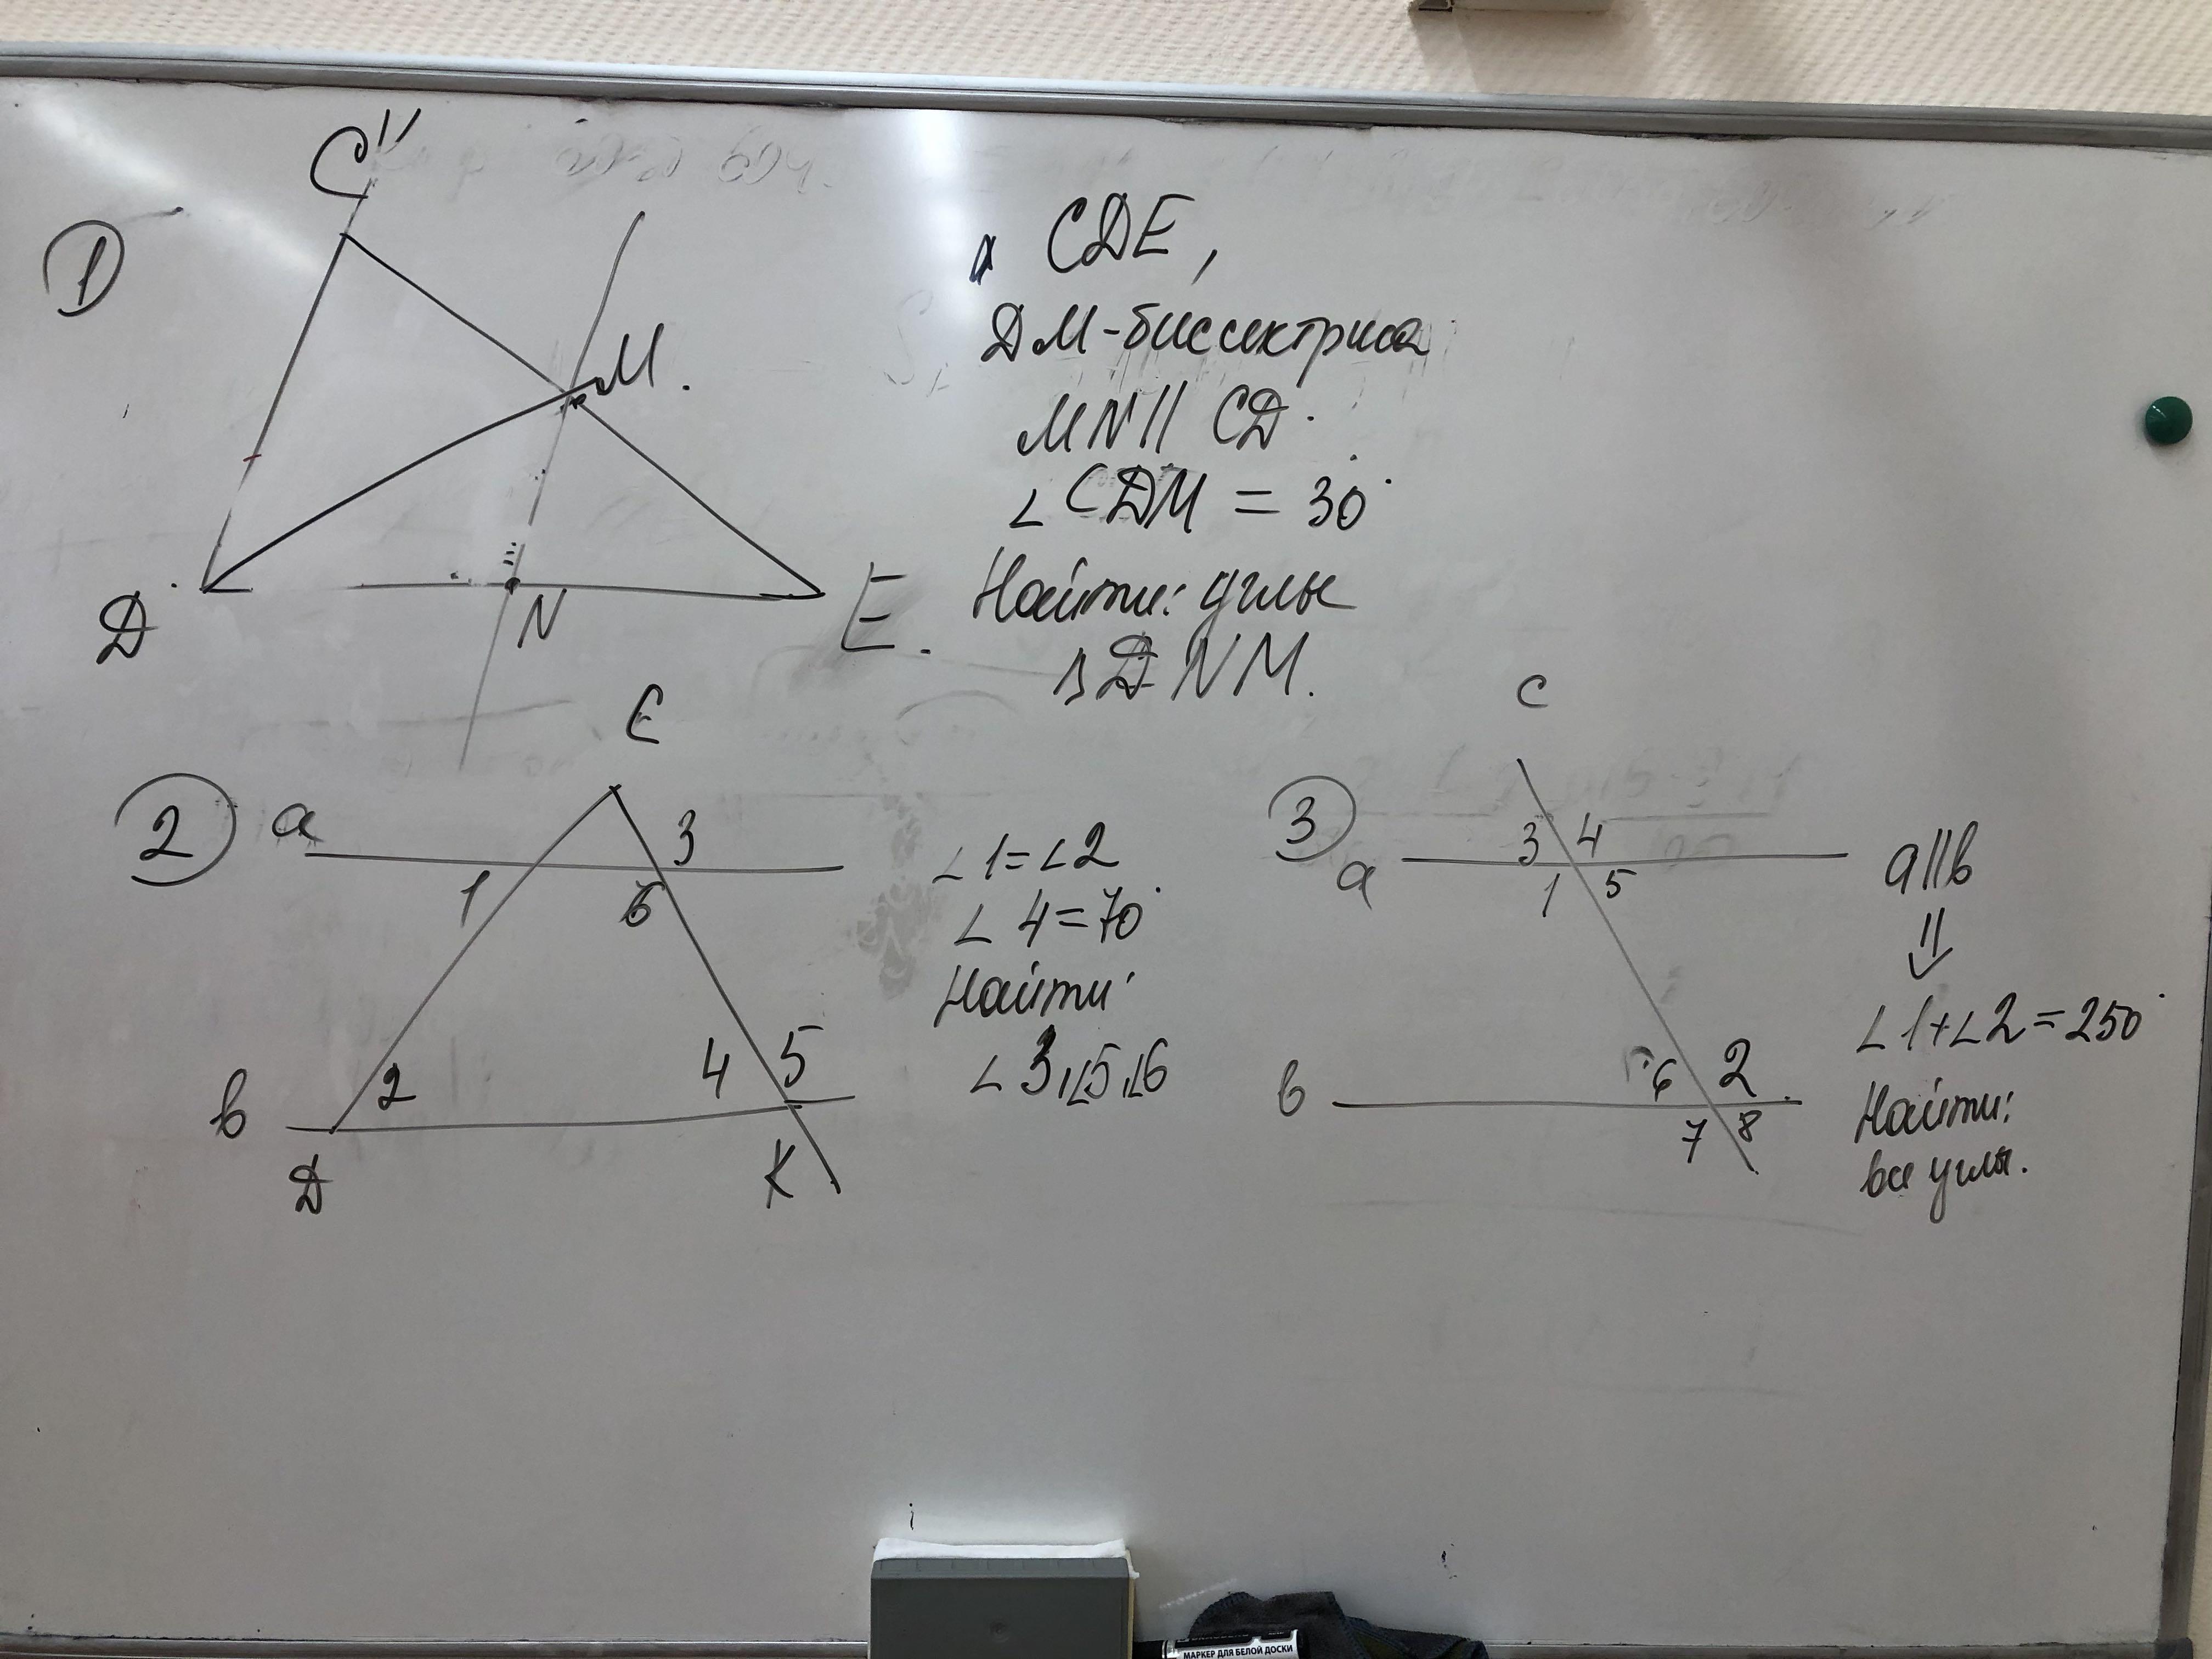 1
C
M.
D
N
E.
Δ CDE,
DM-биссектриса
MN || CD.
∠ CDM = 30°
Найти: углы
Δ DNM.
2
a
E
3
1
6
4
5
2
в
D
K
∠1=∠2
∠ 4=70°
Найти:
∠ 3,∠5,∠6
3
C
3 4
a
1 5
6 2
в
7 8
a||в
⇓
∠1+∠2=250°
Найти:
все углы.
МАРКЕР ДЛЯ БЕЛОЙ ДОСКИ